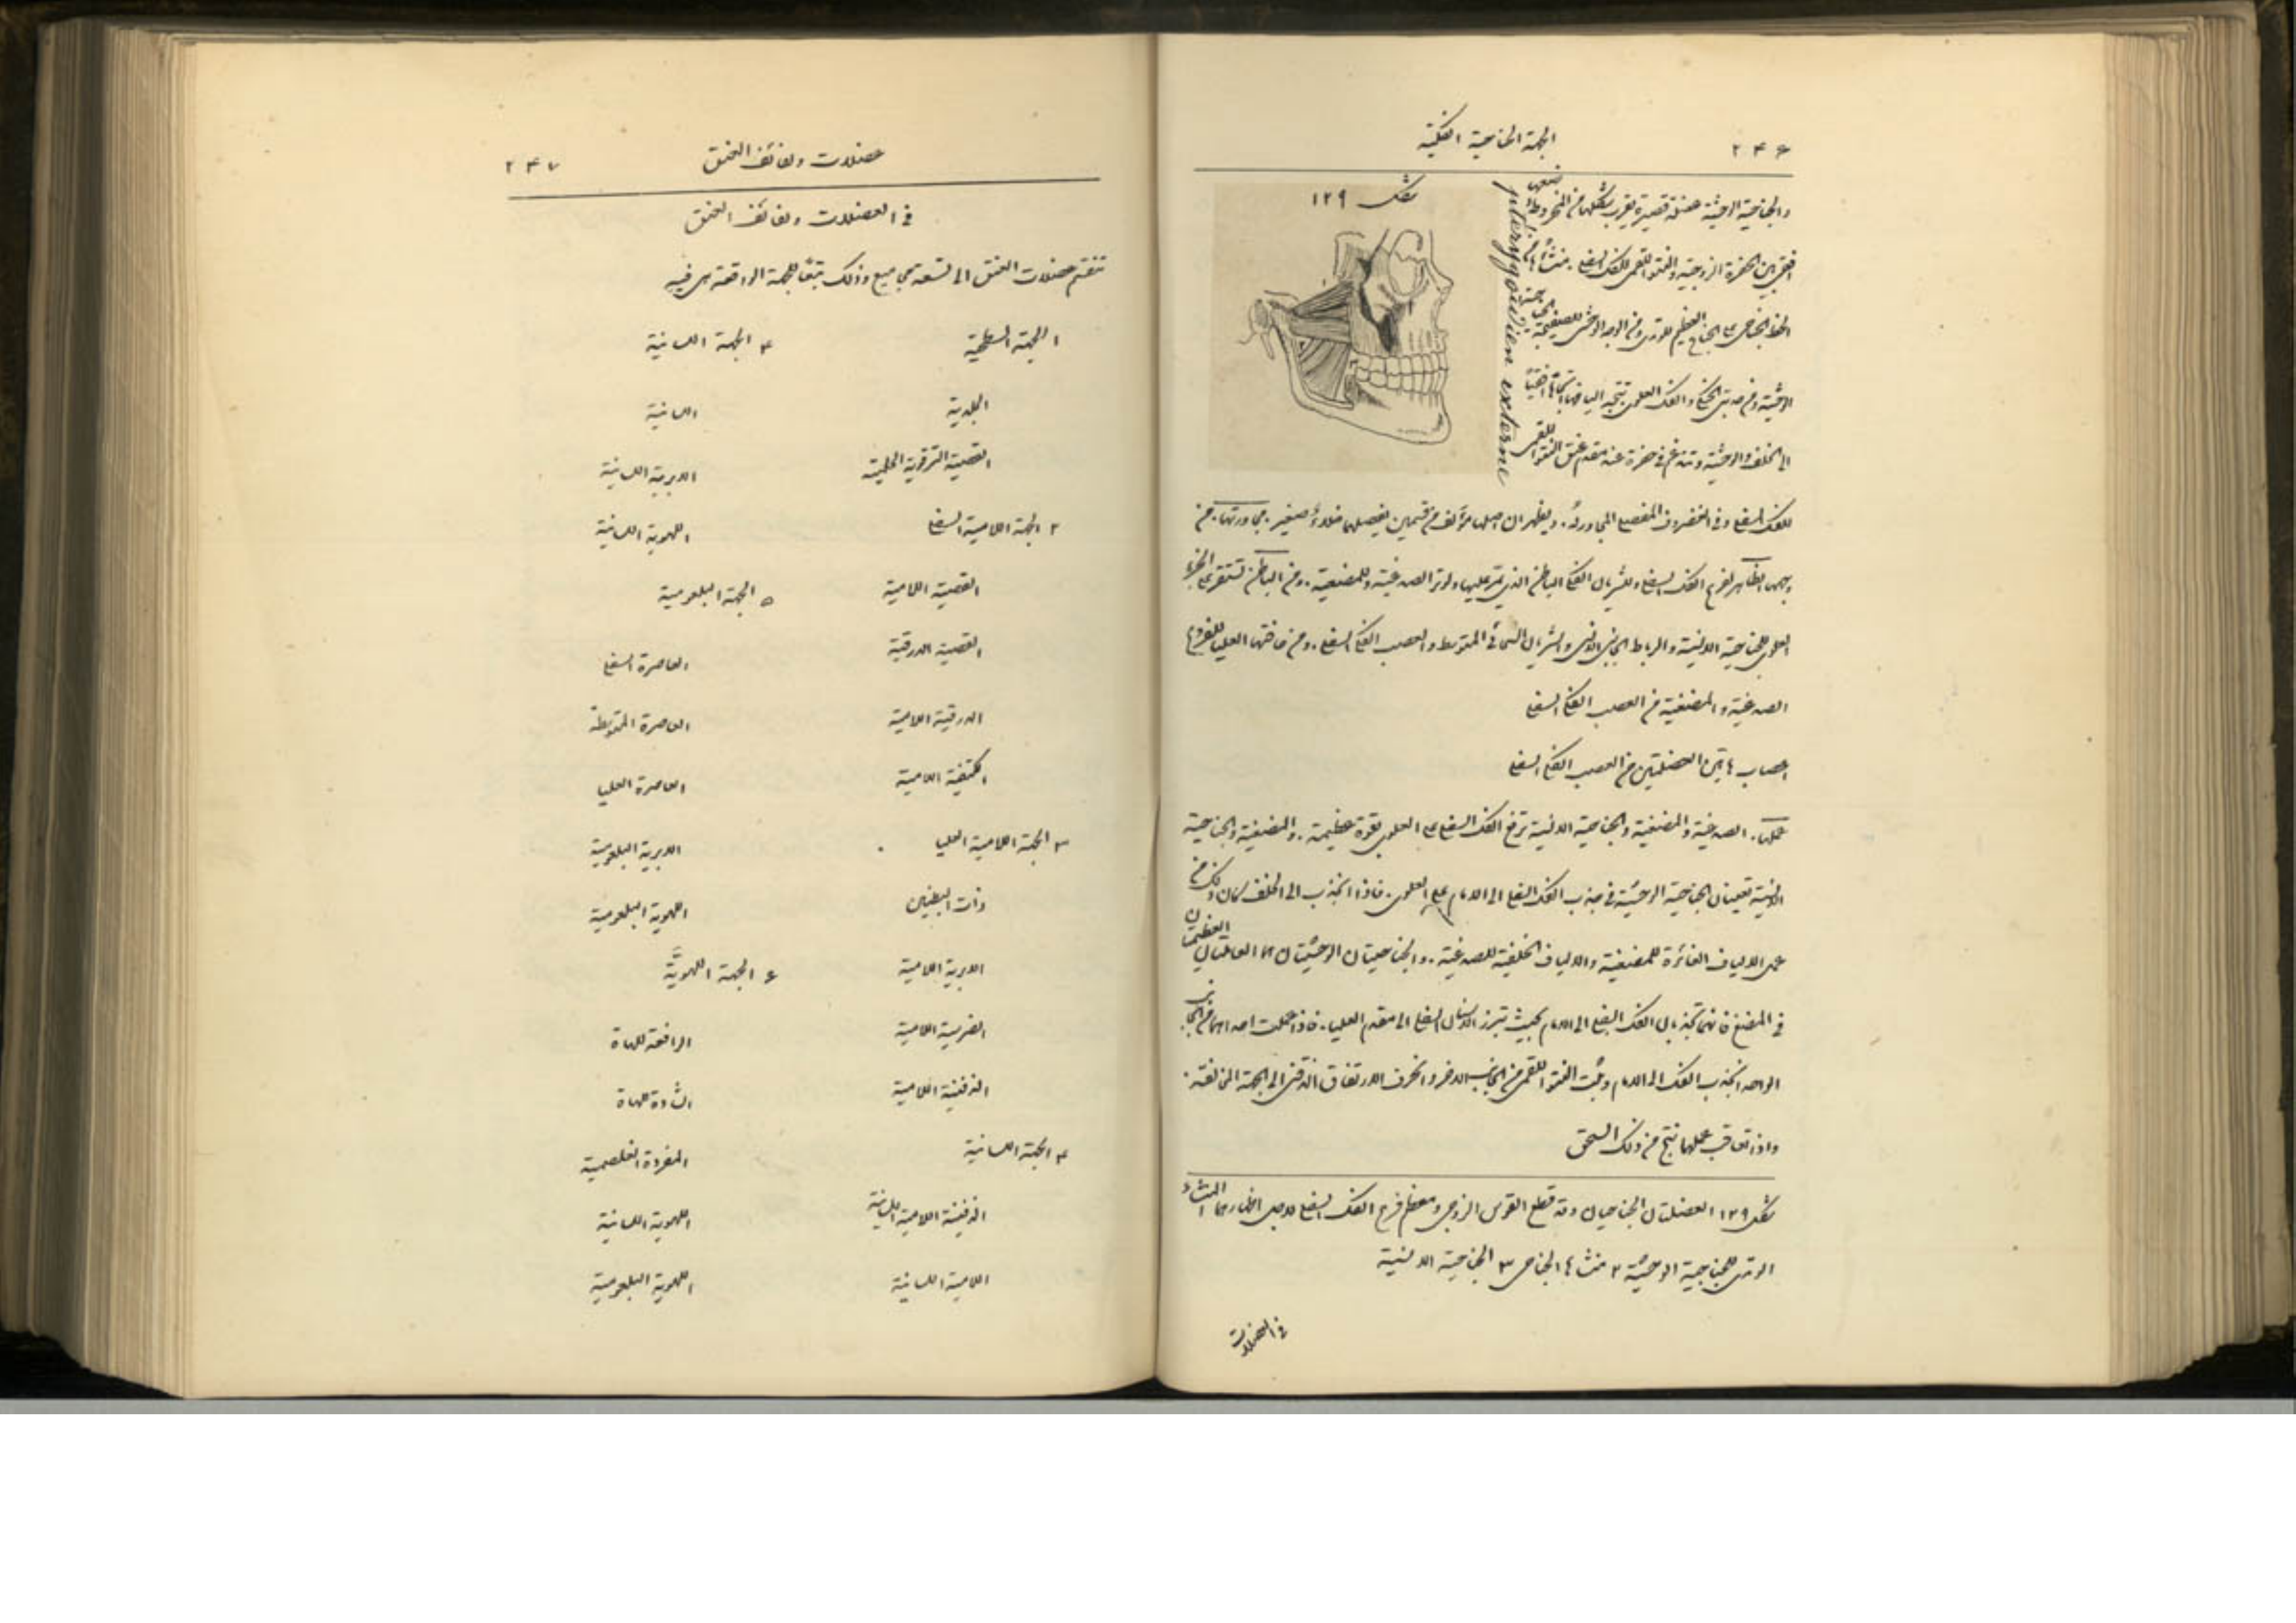 ٢٤٦
الجهة الجناحية الفكية
شكل ١٢٩
pterygoidien externe
والجناحية الوحشية عضلة قصيرة يقرب شكلها من المخروط وضعها
افقي بين الحفرة الزوجية والنتو اللقمي للفك السفلي. منشأها من
الجناح العظيم للوتدي ومن الوجه الوحشي للصفيحة الجناحية
الوحشية ومن حدبتي الحنكي والفك العلوي تتجه اليافها اتجاها افقيا
الى الخلف والوحشية وتندغم في حفرة عند مقدم عنق النتو اللقمي
للفك السفلي وفي الغضروف المفصلي المجاور له. ويظهر ان اصلها مؤلف من قسمين يفصلهما خلاء صغير. مجاورتها. من
وجهها الظاهر لفرع الفك السفلي وللشريان الفكي الباطن الذي يمر عليها ولوتر الصدغية وللمضغية. ومن الباطن تستقر على الجزء
العلوي للجناحية الانسية والرباط الجانبي الانسي والشريان السحائي المتوسط والعصب الفكي السفلي. ومن حافتها العليا للفروع
الصدغية والمضغية من العصب الفكي السفلي
اعصاب هاتين العضلتين من العصب الفكي السفلي
عملها. الصدغية والمضغية والجناحية الانسية ترفع الفك السفلي على العلوي بقوة عظيمة. والمضغية والجناحية
الانسية تعينان الجناحية الوحشية في جذب الفك السفلي الى الامام على العلوي. فاذا انجذب الى الخلف كان ذلك من
عمل الالياف الغائرة للمضغية والالياف الخلفية للصدغية. والجناحيتان الوحشيتان هما العاملتان العظيمتان
في المضغ فانهما تجذبان الفك السفلي الى الامام بحيث تبرز الاسنان السفلى الى مقدم العليا. فاذا عملت احداهما من الجانب
الواحد انجذب الفك الى الامام وثبت النتو اللقمي من الجانب الاخر وانحرف الارتفاق الذقني الى الجهة المخالفة.
واذا تعاقب عملهما نتج من ذلك السحق
شكل ١٢٩ العضلتان الجناحيتان وقد قطع القوس الزوجي ومعظم فرع الفك السفلي لاجل اظهارهما ١ المنشاء
الوتدي للجناحية الوحشية ٢ منشاها الجناحي ٣ الجناحية الانسية
في العضلات
عضلات ولفائف العنق
٢٤٧
في العضلات ولفائف العنق
تنقسم عضلات العنق الى تسعة مجاميع وذلك تبعًا للجهة الواقعة هي فيه
١ الجهة السطحية
الجلدية
القصية الترقوية الحلمية
٢ الجهة اللامية السفلى
القصية اللامية
القصية الدرقية
الدرقية اللامية
الكتفية اللامية
٣ الجهة اللامية العليا
ذات البطنين
الابرية اللامية
الضرسية اللامية
الذقنية اللامية
٤ الجهة اللسانية
الذقنية اللامية اللسانية
اللامية اللسانية
٤ الجهة اللسانية
اللسانية
الابرية اللسانية
اللهوية اللسانية
٥ الجهة البلعومية
العاصرة السفلى
العاصرة المتوسطة
العاصرة العليا
الابرية البلعومية
اللهوية البلعومية
٦ الجهة اللهوية
الرافعة للهاة
الشادة للهاة
المفردة الغلصمية
اللهوية اللسانية
اللهوية البلعومية